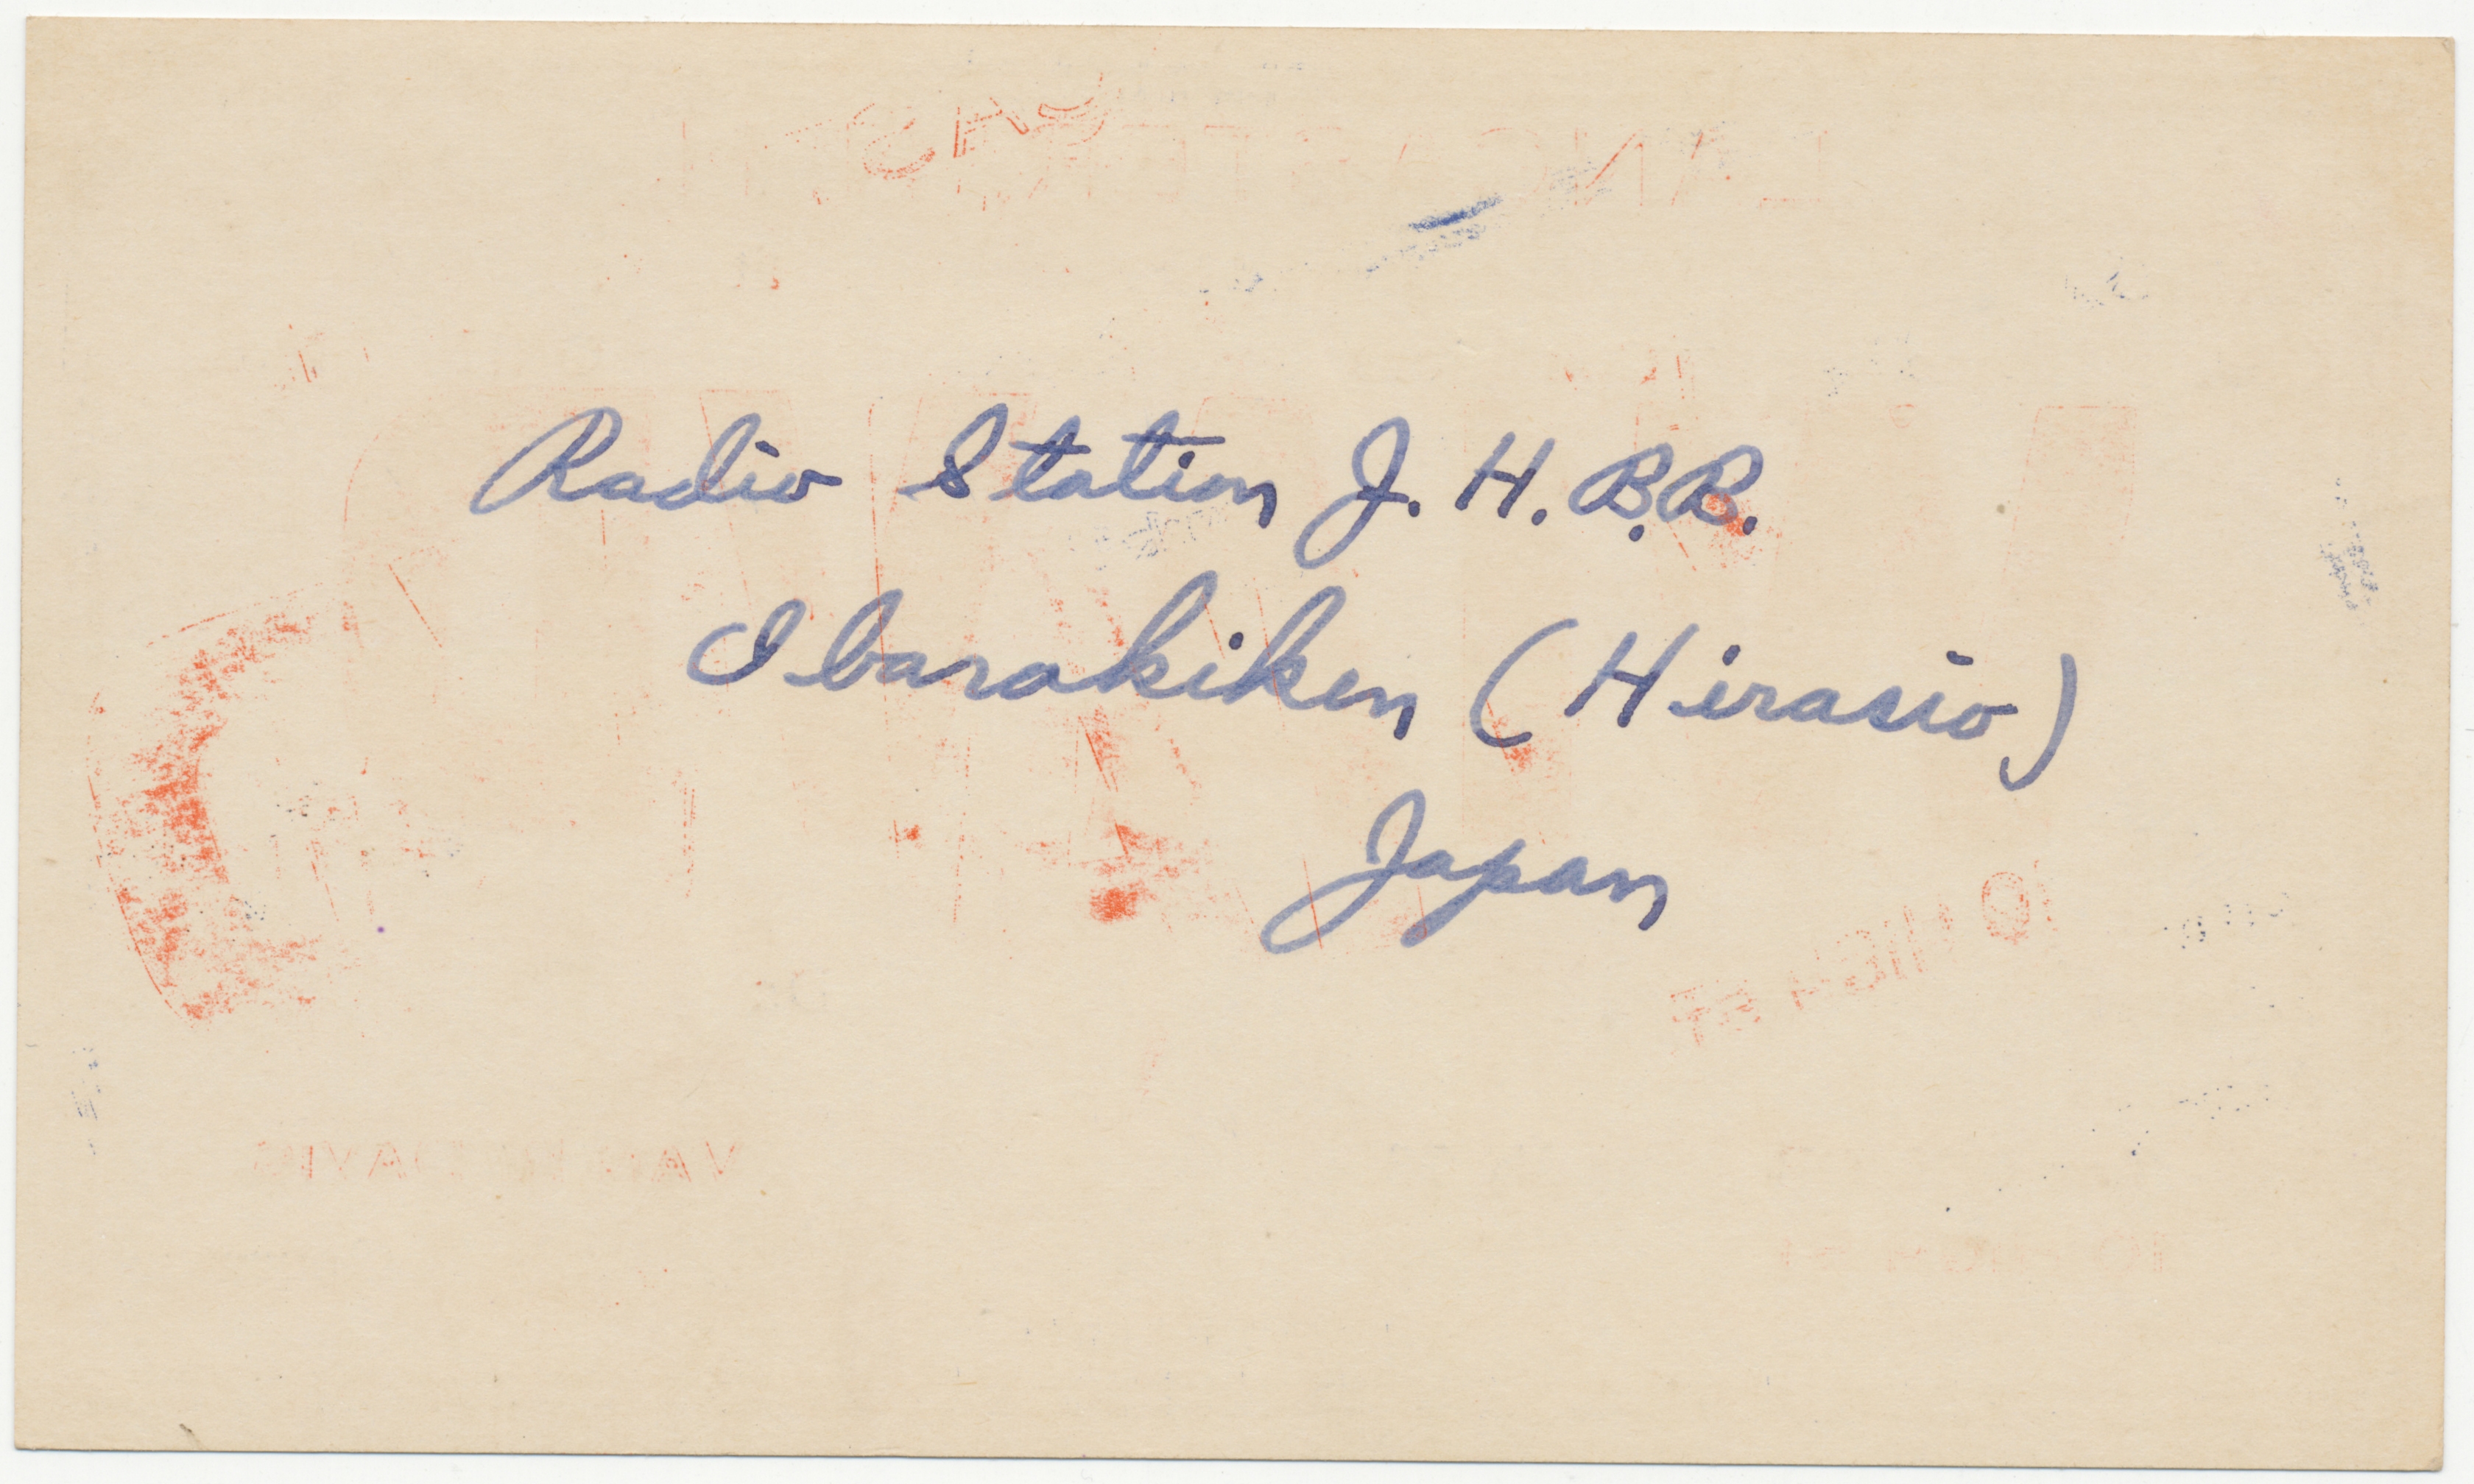 Radio Station J. H. B. B.
Ibarakiken (Hiraiso)
Japan
10 HIGH ST